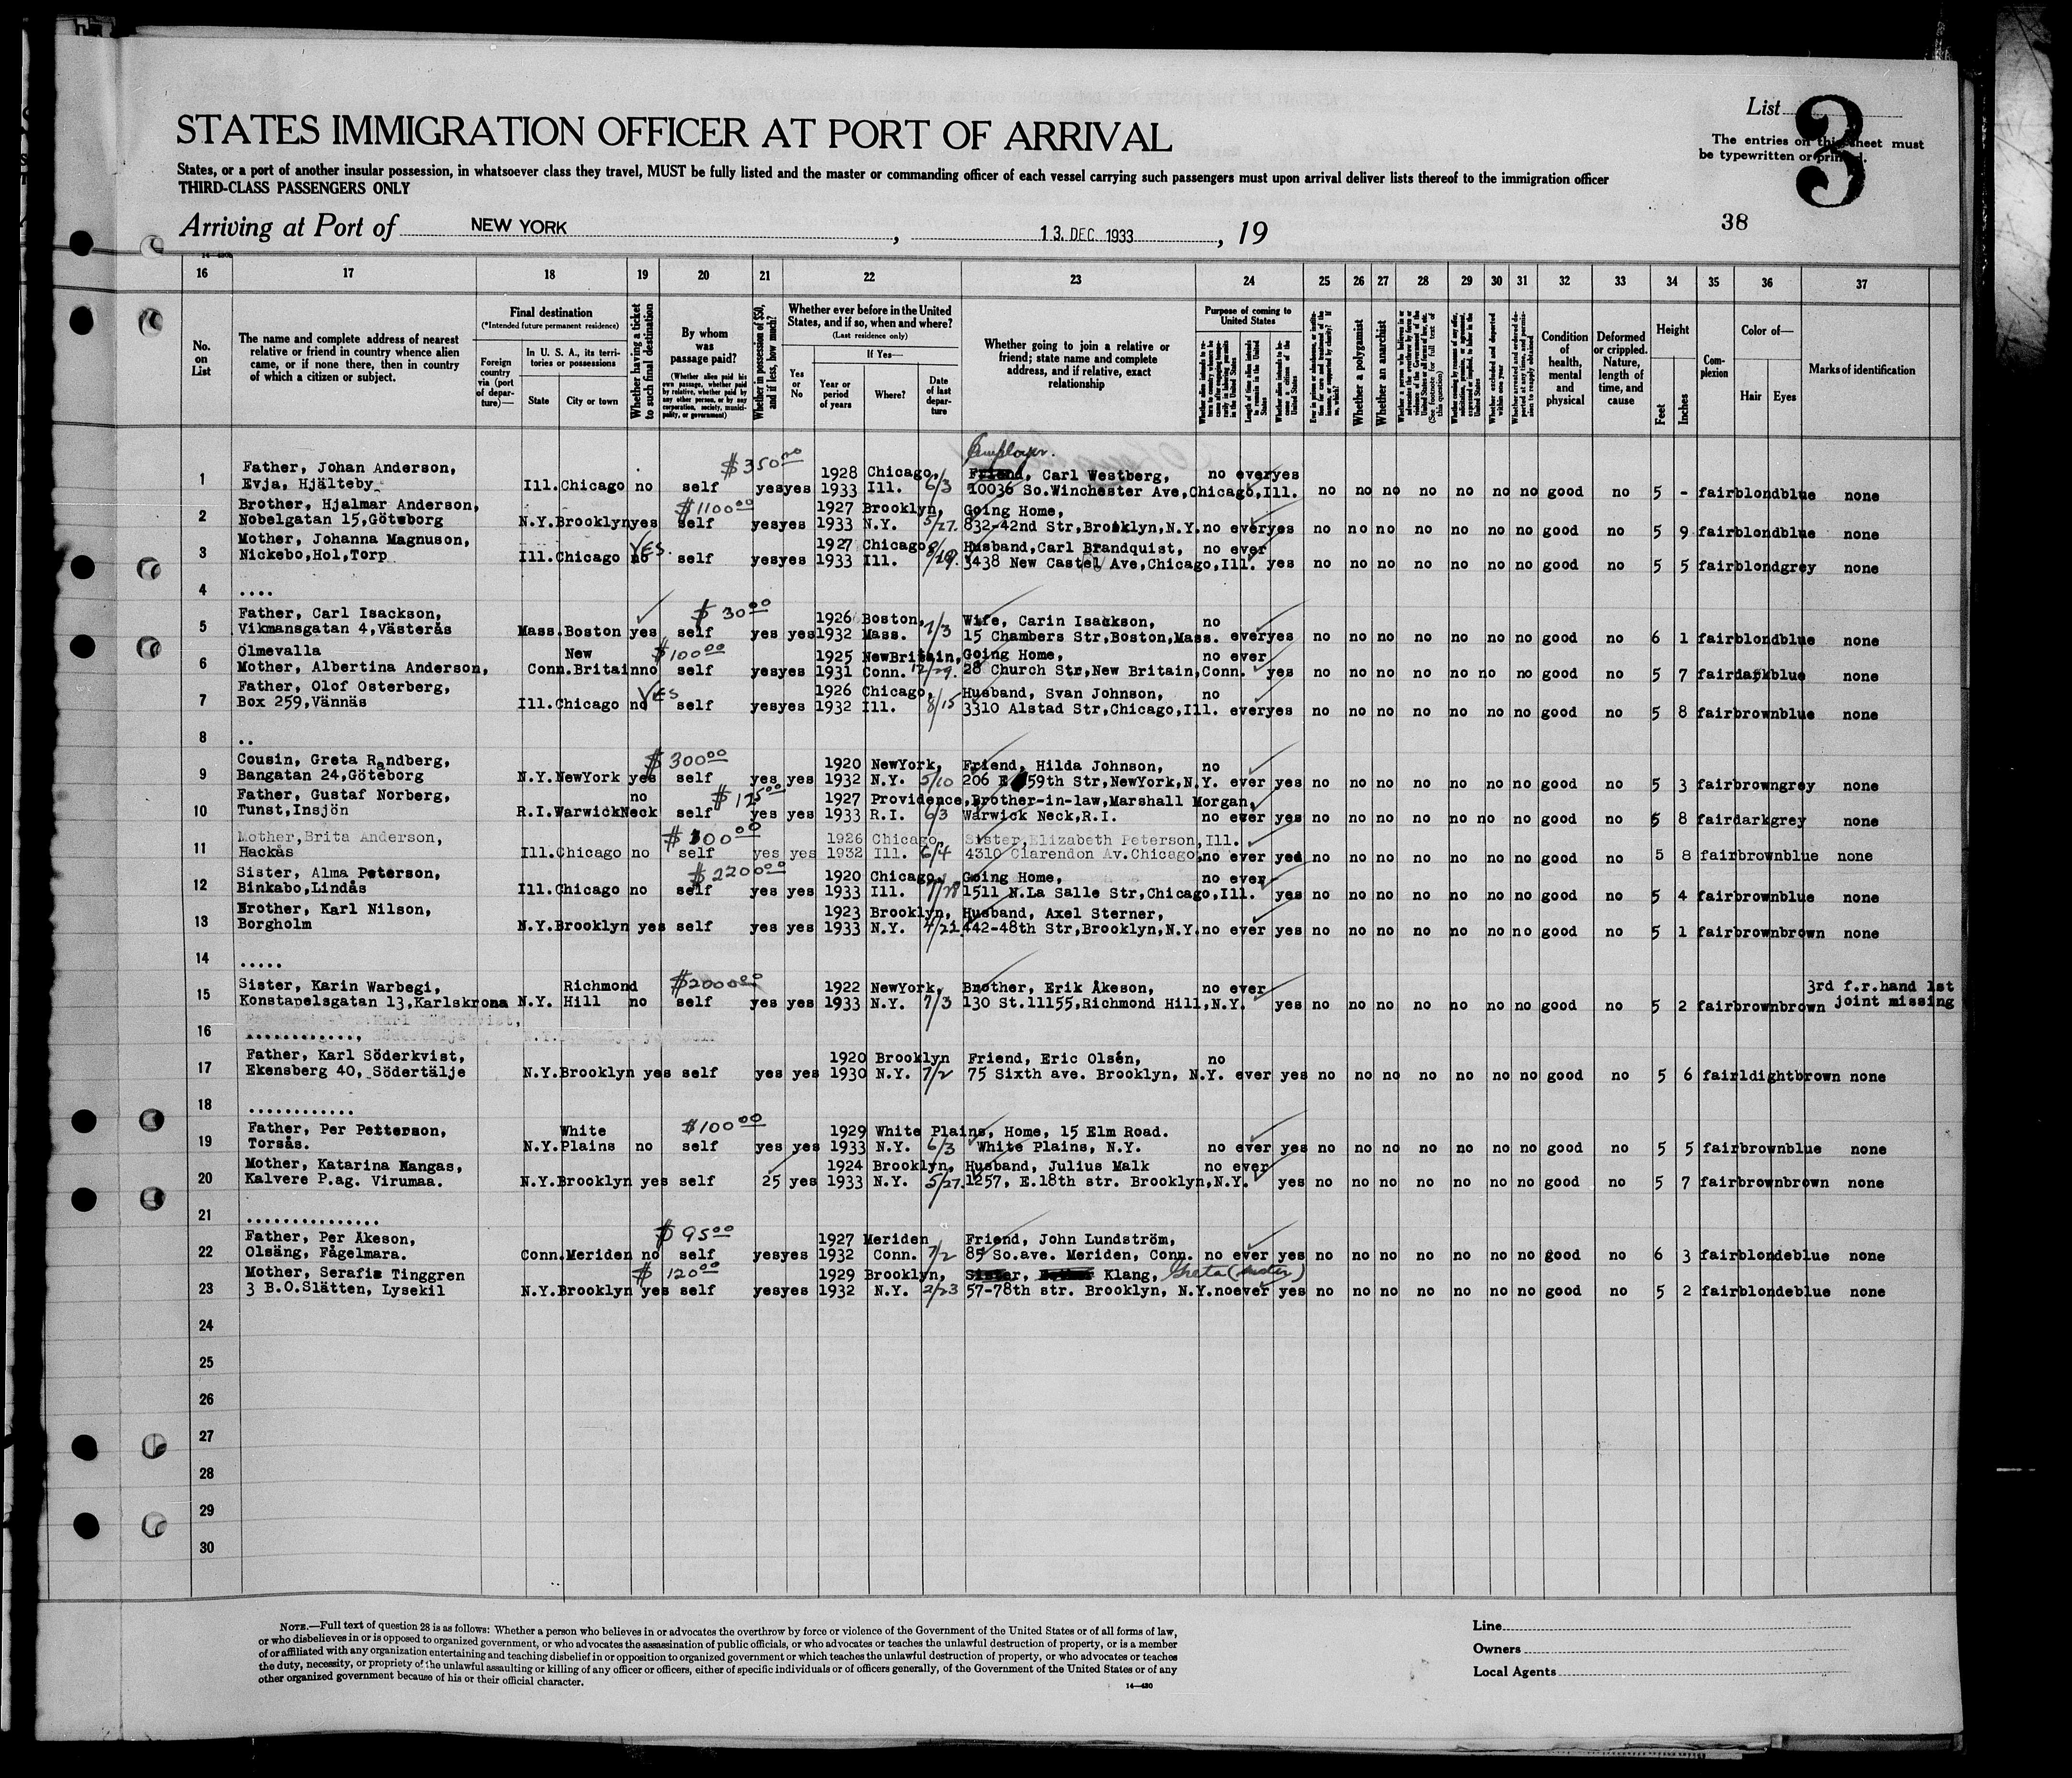 List 3
STATES IMMIGRATION OFFICER AT PORT OF ARRIVAL
The entries on this sheet must
be typewritten or printed.
States, or a port of another insular possession, in whatsoever class they travel, MUST be fully listed and the master or commanding officer of each vessel carrying such passengers must upon arrival deliver lists thereof to the immigration officer
THIRD-CLASS PASSENGERS ONLY
38
Arriving at Port of NEW YORK, 13. DEC. 1933, 19
14-430
16 17 18 19 20 21 22 23 24 25 26 27 28 29 30 31 32 33 34 35 36 37
No. on List
The name and complete address of nearest relative or friend in country whence alien came, or if none there, then in country of which a citizen or subject.
Final destination
(*Intended future permanent residence)
Foreign country via (port of departure)—
In U. S. A., its territories or possessions
State City or town
Whether having a ticket to such final destination
By whom was passage paid?
(Whether alien paid his own passage, whether paid by relative, whether paid by any other person, or by any corporation, society, municipality, or government)
Whether in possession of $50, and if less, how much?
Whether ever before in the United States, and if so, when and where?
(Last residence only)
Yes or No
If Yes—
Year or period of years
Where?
Date of last departure
Whether going to join a relative or friend; state name and complete address, and if relative, exact relationship
Purpose of coming to United States
Length of time alien intends to remain in the United States
Whether alien intends to become a citizen of the United States
Whether a polygamist
Whether an anarchist
(See footnote for full text of this question)
Whether excluded and deported within one year
Condition of health, mental and physical
Deformed or crippled. Nature, length of time, and cause
Height
Feet Inches
Complexion
Color of—
Hair Eyes
Marks of identification
Employer.
Father, Johan Anderson, $350 00 1928 Chicago, Friend, Carl Westberg, no ever yes
1 Evja, Hjälteby Ill. Chicago no self yes yes 1933 Ill. 6/3 10036 So.Winchester Ave,Chicago,Ill. no no no no no no no good no 5 - fair blond blue none
Brother, Hjalmar Anderson, $1100 00 1927 Brooklyn, Going Home,
2 Nobelgatan 15,Göteborg N.Y. Brooklyn yes self yes yes 1933 N.Y. 5/27. 832-42nd Str,Brooklyn,N.Y. no ever yes no no no no no no no good no 5 9 fair blond blue none
Mother, Johanna Magnuson, YES. 1927 Chicago Husband,Carl Brandquist, no ever
3 Nickebo,Hol,Torp Ill. Chicago no self yes yes 1933 Ill. 3438 New Castel Ave,Chicago,Ill. yes no no no no no no no good no 5 5 fair blond grey none
4 ....
Father, Carl Isackson, $ 30 00 1926 Boston, Wife, Carin Isackson, no
5 Vikmansgatan 4,Västerås Mass. Boston yes self yes yes 1932 Mass. 7/3 15 Chambers Str,Boston,Mass. ever yes no no no no no no no good no 6 1 fair blond blue none
Ölmevalla New $100 00 1925 NewBritain, Going Home, no ever
6 Mother, Albertina Anderson, Conn. Britain no self yes yes 1931 Conn. 12/29. 28 Church Str,New Britain,Conn. yes no no no no no no no good no 5 7 fair dark blue none
Father, Olof Osterberg, Yes 1926 Chicago, Husband, Svan Johnson, no
7 Box 259,Vännäs Ill. Chicago no self yes yes 1932 Ill. 8/15 3310 Alstad Str,Chicago,Ill. ever yes no no no no no no no good no 5 8 fair brown blue none
8 ..
Cousin, Greta Randberg, $300 00 1920 NewYork, Friend, Hilda Johnson, no
9 Bangatan 24,Göteborg N.Y. NewYork yes self yes yes 1932 N.Y. 5/10 206 E 59th Str,NewYork,N.Y. ever yes no no no no no no no good no 5 3 fair brown grey none
Father, Gustaf Norberg, no $125 00 1927 Providence, Brother-in-law,Marshall Morgan,
10 Tunst,Insjön R.I. WarwickNeck self yes yes 1933 R.I. 6/3 Warwick Neck,R.I. no ever yes no no no no no no no good no 5 8 fair dark grey none
Mother,Brita Anderson, $300 00 1926 Chicago, Sister,Elizabeth Peterson,Ill.
11 Hackås Ill. Chicago no self yes yes 1932 Ill. 6/4 4310 Clarendon Av.Chicago, no ever yes no no no no no no no good no 5 8 fair brown blue none
Sister, Alma Peterson, $2200 00 1920 Chicago, Going Home, no ever
12 Binkabo,Lindås Ill. Chicago no self yes yes 1933 Ill. 7/28 1511 N.La Salle Str,Chicago,Ill. yes no no no no no no no good no 5 4 fair brown blue none
Brother, Karl Nilson, 1923 Brooklyn, Husband, Axel Sterner,
13 Borgholm N.Y. Brooklyn yes self yes yes 1933 N.Y. 4/22. 442-48th Str,Brooklyn,N.Y. no ever yes no no no no no no no good no 5 1 fair brown brown none
14 .....
Sister, Karin Warbegi, Richmond $2000 00 1922 NewYork, Brother, Erik Åkeson, no ever 3rd f.r.hand 1st
15 Konstapelsgatan 13,Karlskrona N.Y. Hill no self yes yes 1933 N.Y. 7/3 130 St.11155,Richmond Hill,N.Y. yes no no no no no no no good no 5 2 fair brown brown joint missing
16 ............,
Father, Karl Söderkvist, 1920 Brooklyn Friend, Eric Olsén, no
17 Ekensberg 40, Södertälje N.Y. Brooklyn yes self yes yes 1930 N.Y. 7/2 75 Sixth ave. Brooklyn, N.Y. ever yes no no no no no no no good no 5 6 fair ldight brown none
18 ............
Father, Per Petterson, White $100 00 1929 White Plains, Home, 15 Elm Road.
19 Torsås. N.Y. Plains no self yes yes 1933 N.Y. 6/3 White Plains, N.Y. no ever yes no no no no no no no good no 5 5 fair brown blue none
Mother, Katarina Mangas, 1924 Brooklyn, Husband, Julius Malk no ever
20 Kalvere P.ag. Virumaa. N.Y. Brooklyn yes self 25 yes 1933 N.Y. 5/27. 1257, E.18th str. Brooklyn,N.Y. yes no no no no no no no good no 5 7 fair brown brown none
21 ...............
Father, Per Åkeson, $ 95 00 1927 Meriden Friend, John Lundström,
22 Olsäng, Fågelmara. Conn. Meriden no self yes yes 1932 Conn. 7/2 85 So.ave. Meriden, Conn. no ever yes no no no no no no no good no 6 3 fair blonde blue none
Mother, Serafia Tinggren $ 120 00 1929 Brooklyn, Klang, Greta (sister)
23 3 B.O.Slätten, Lysekil N.Y. Brooklyn yes self yes yes 1932 N.Y. 2/23 57-78th str. Brooklyn, N.Y. no ever yes no no no no no no no good no 5 2 fair blonde blue none
24
25
26
27
28
29
30
NOTE.—Full text of question 28 is as follows: Whether a person who believes in or advocates the overthrow by force or violence of the Government of the United States or of all forms of law,
or who disbelieves in or is opposed to organized government, or who advocates the assassination of public officials, or who advocates or teaches the unlawful destruction of property, or is a member
of or affiliated with any organization entertaining and teaching disbelief in or opposition to organized government or which teaches the unlawful destruction of property, or who advocates or teaches
the duty, necessity, or propriety of the unlawful assaulting or killing of any officer or officers, either of specific individuals or of officers generally, of the Government of the United States or of any
other organized government because of his or their official character.
14—430
Line
Owners
Local Agents